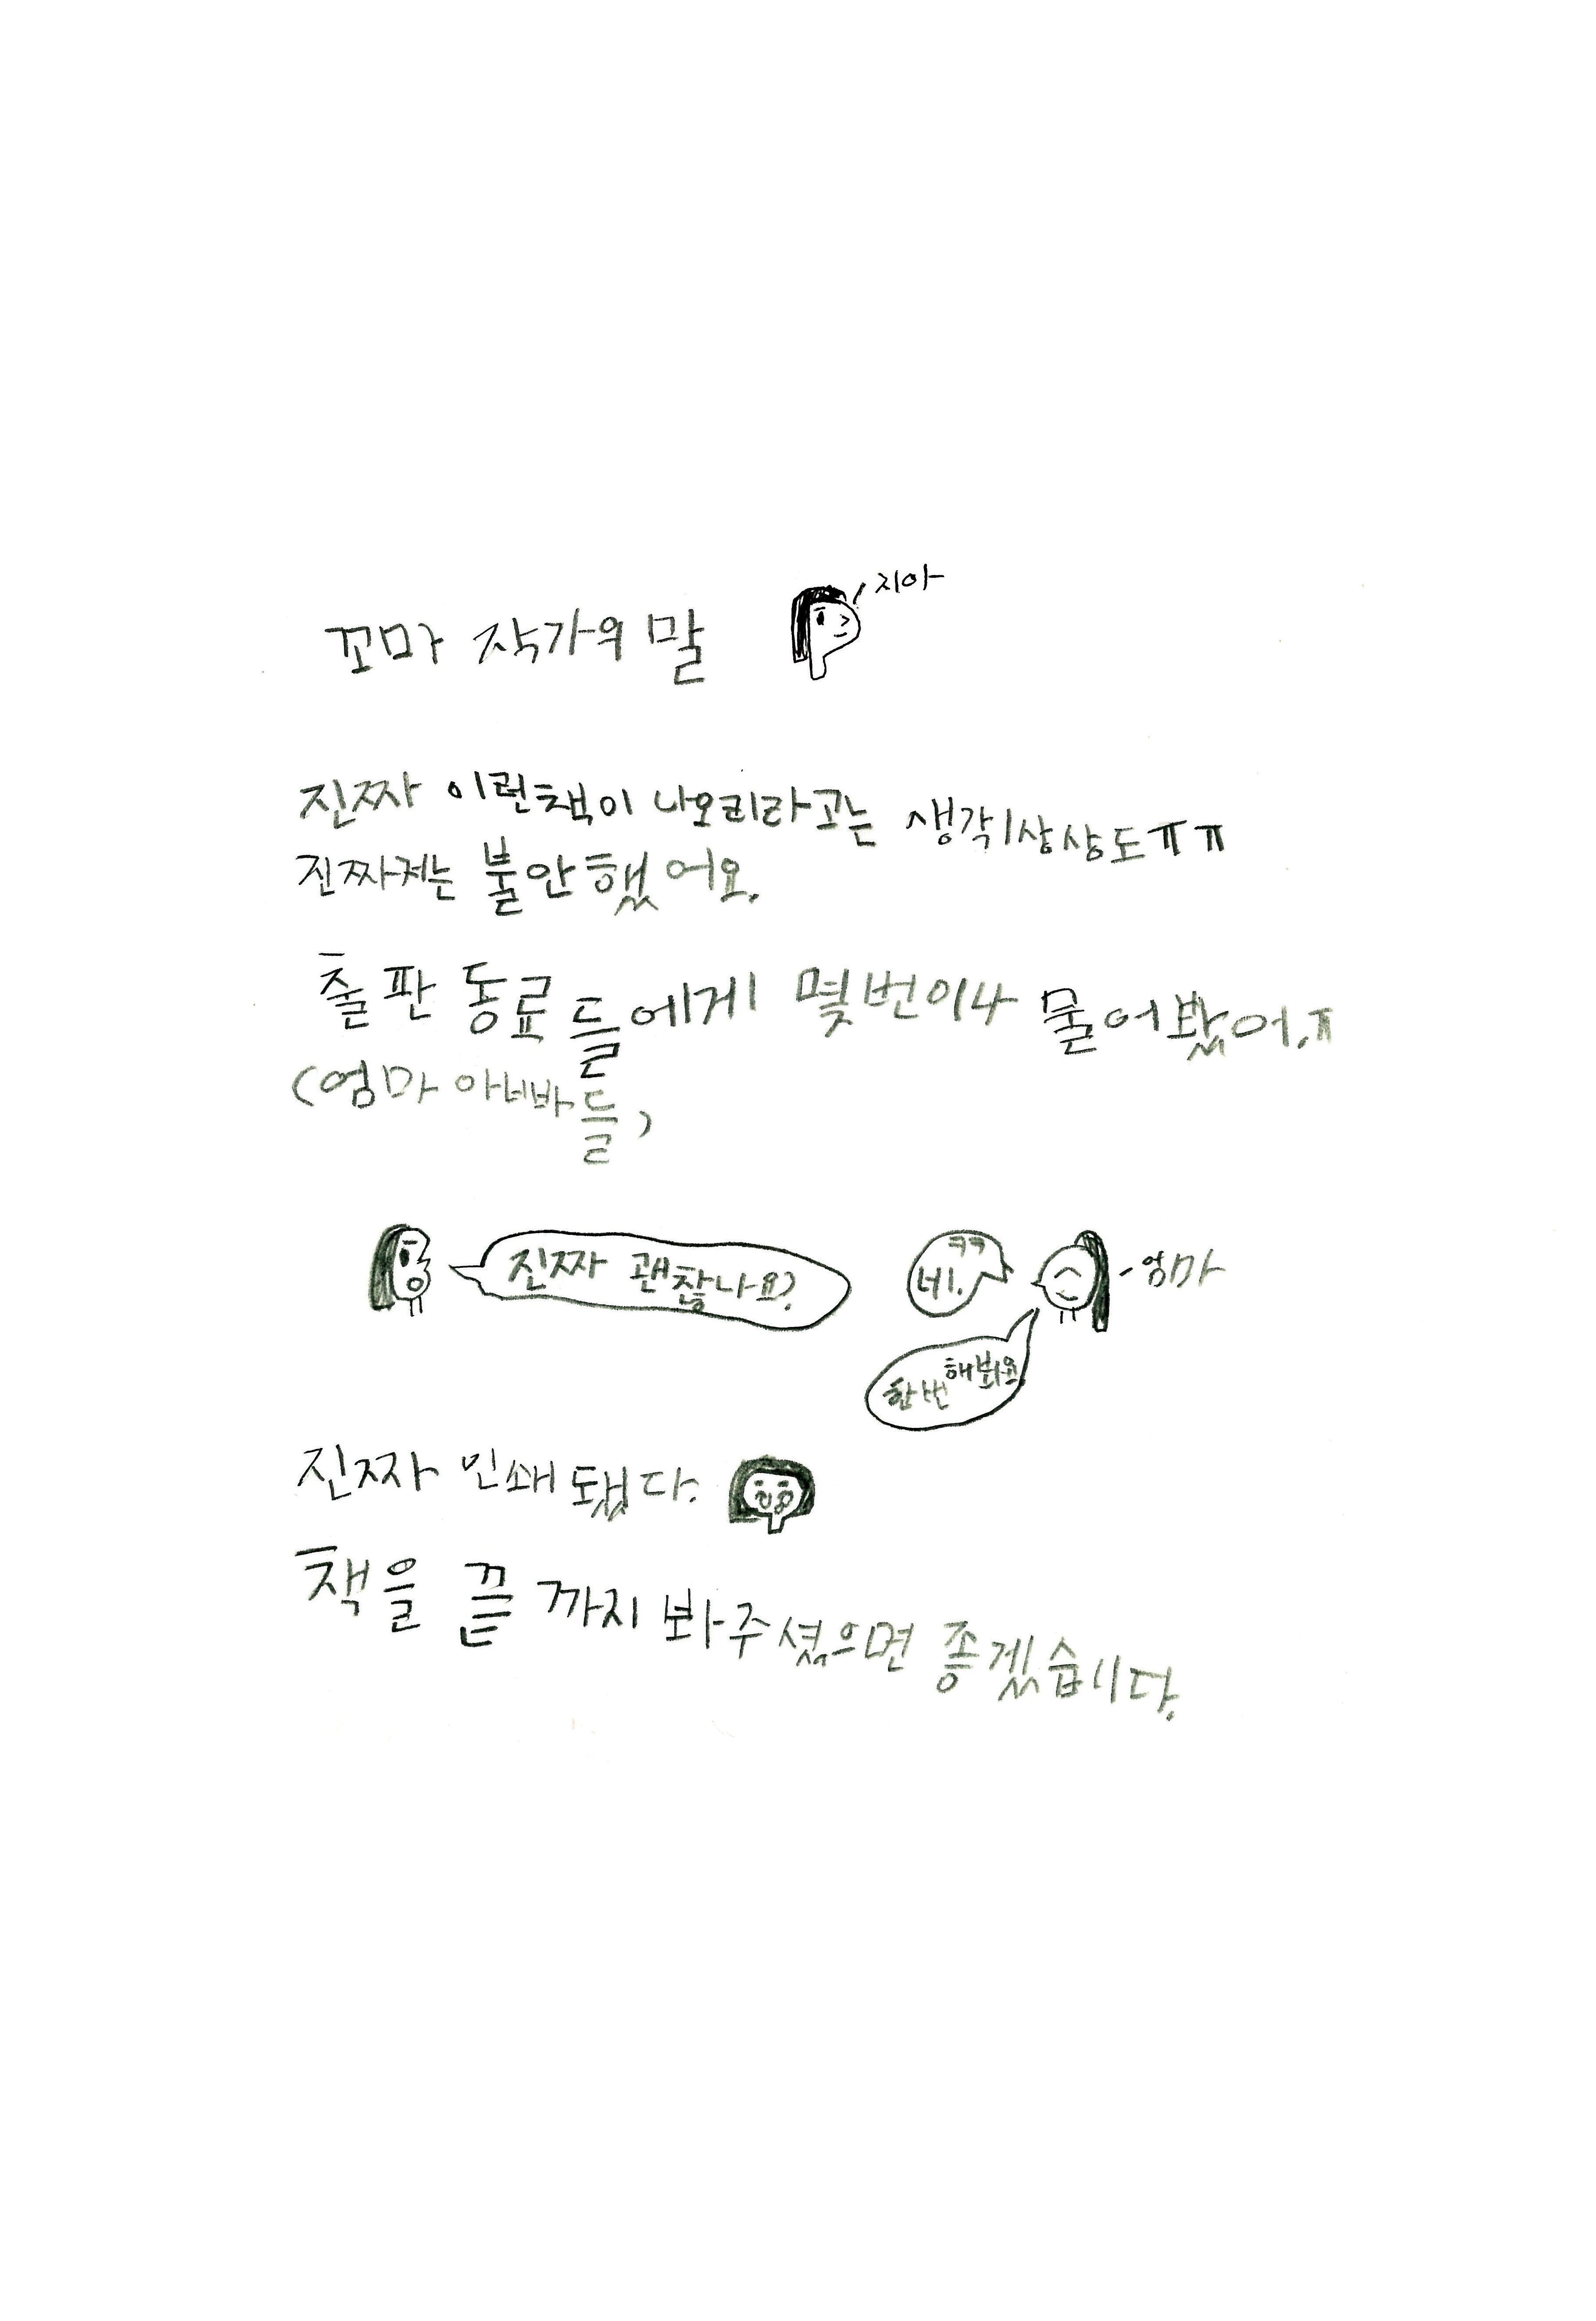 꼬마 작가의 말
지아
진짜 이런책이 나오리라고는 생각|상상도ㅠㅠ
진짜저는 불안했어요.
출판 동료들에게 몇번이나 물어봤어.ㅠ
(엄마 아빠들)
진짜 괜찮나요?
ㅋㅋ
네.
-엄마
한번 해봐요
진짜 인쇄 됐다.
책을 끝까지 봐주셨으면 좋겠습니다.